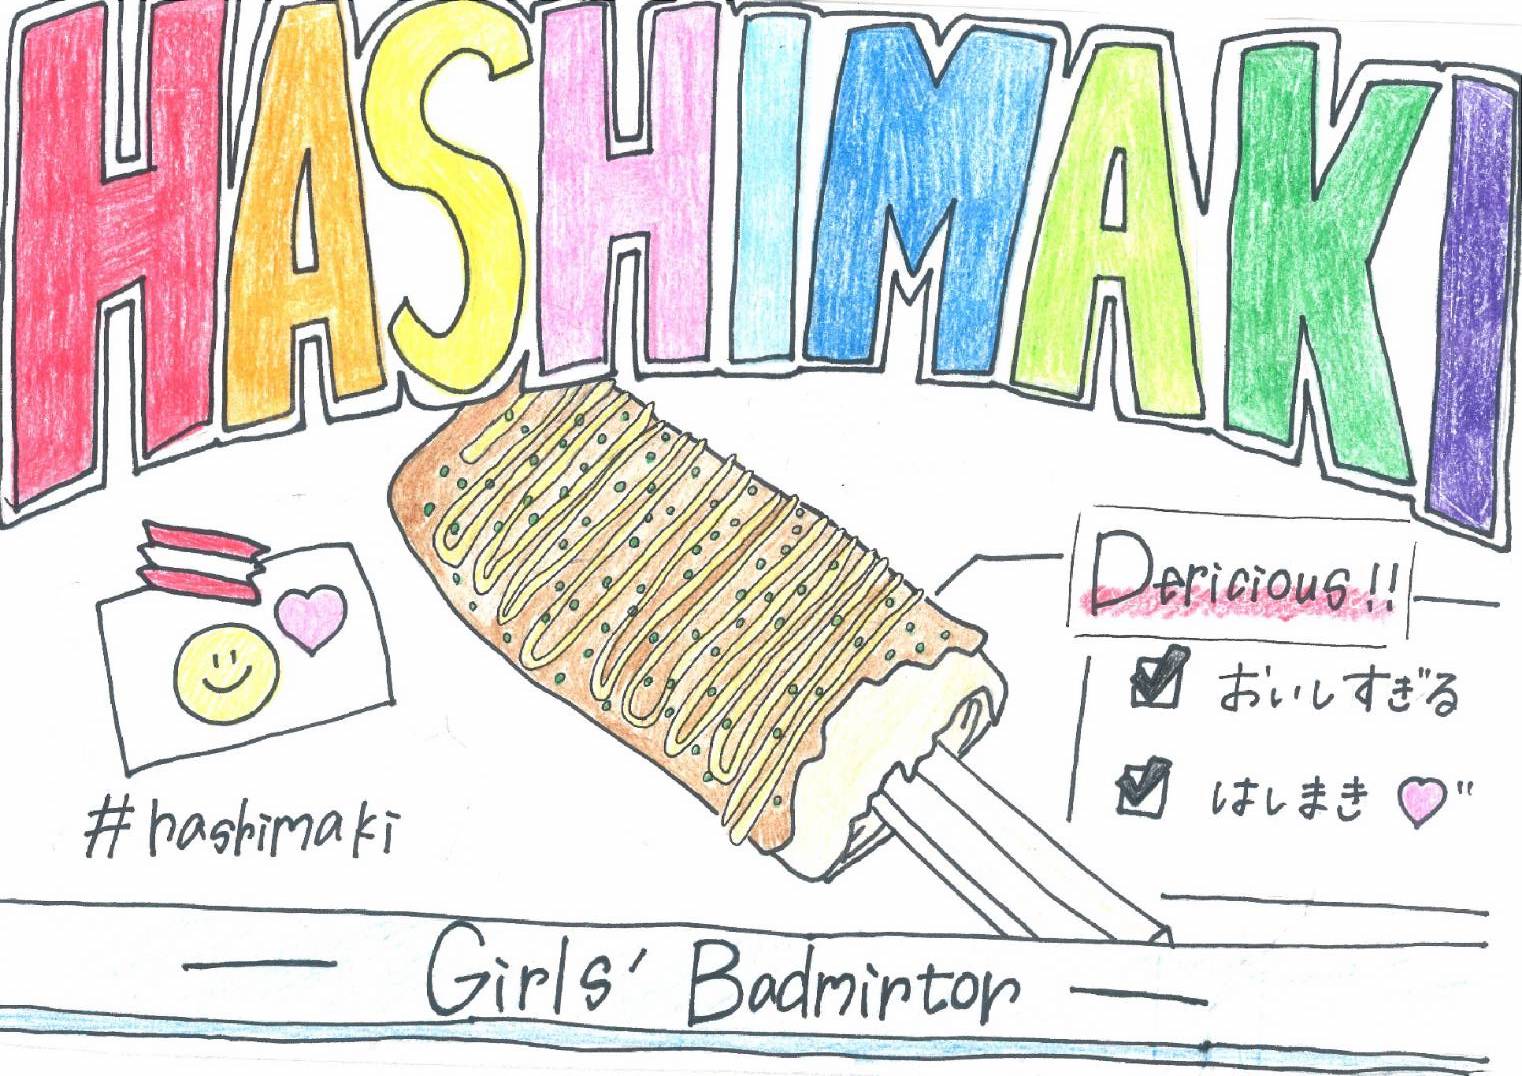 HASHIMAKI
Dericious!!
おいしすぎる
はしまき
#hashimaki
Girls' Badminton